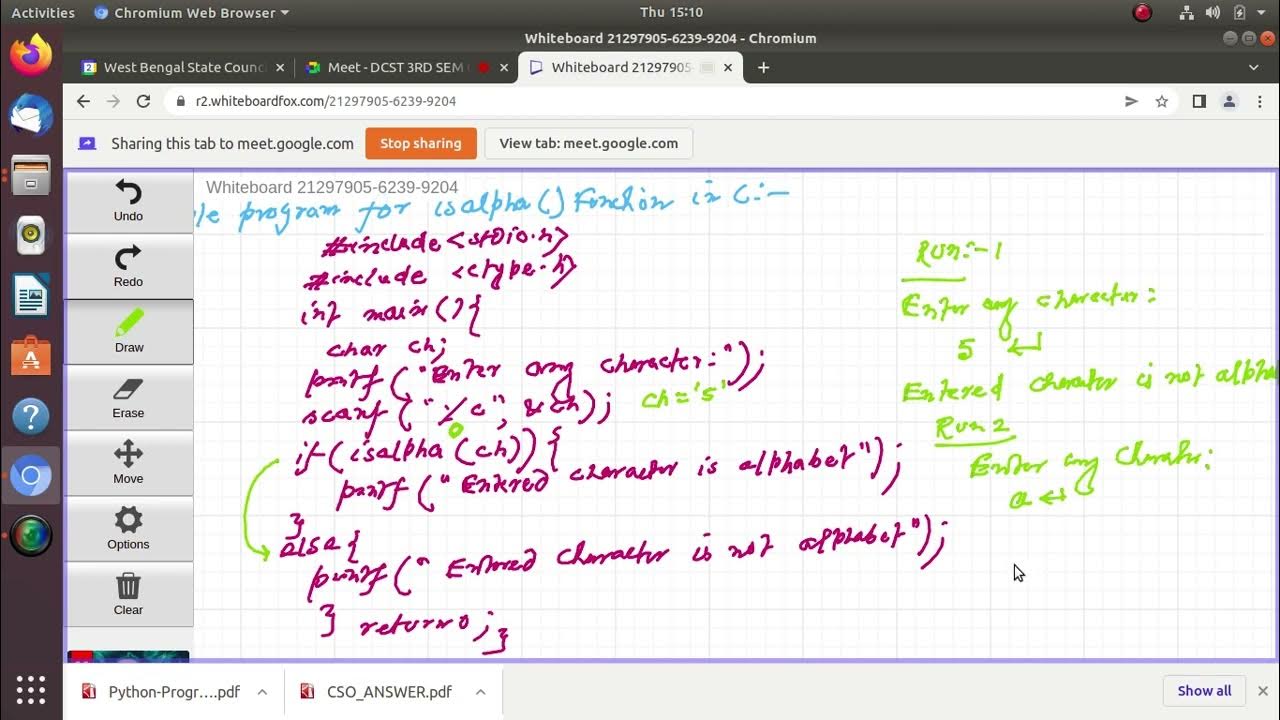 Activities
Chromium Web Browser
Thu 15:10
Whiteboard 21297905-6239-9204 - Chromium
West Bengal State Counc
Meet - DCST 3RD SEM
Whiteboard 21297905-
r2.whiteboardfox.com/21297905-6239-9204
Sharing this tab to meet.google.com
Stop sharing
View tab: meet.google.com
Undo
Redo
Draw
Erase
Move
Options
Clear
Whiteboard 21297905-6239-9204
le program for isalpha() Function in C:-
#include <stdio.h>
#include <ctype.h>
int main(){
char ch;
printf("Enter any character:");
scanf("%c", &ch); ch='5'
0
if(isalpha(ch)){
printf("Entered character is alphabet");
}
else{
printf("Entered character is not alphabet");
} return 0;}
Run:-1
Enter any character:
5
Entered character is not alpha
Run 2
Enter any character:
a
Python-Progr....pdf
CSO_ANSWER.pdf
Show all